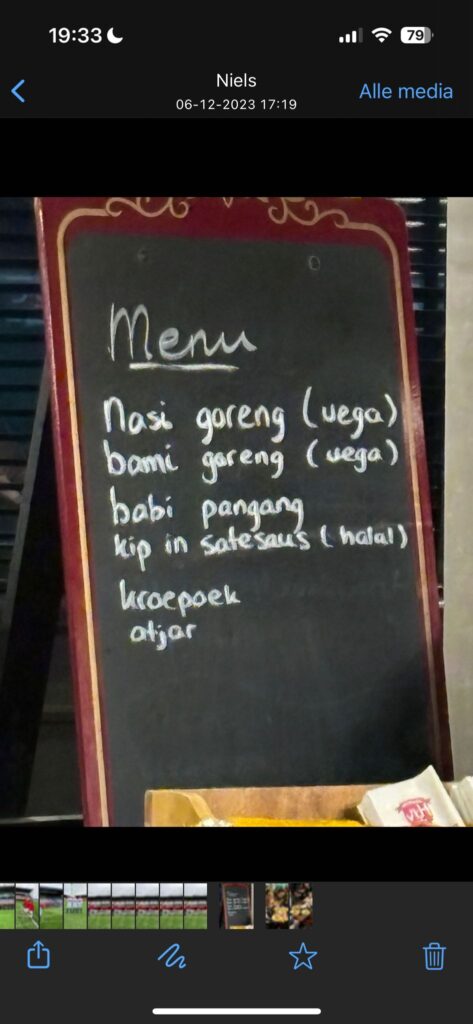 19:33
79
Niels
06-12-2023 17:19
Alle media
Menu
Nasi goreng (vega)
bami goreng (vega)
babi pangang
kip in satesaus (halal)
kroepoek
atjar